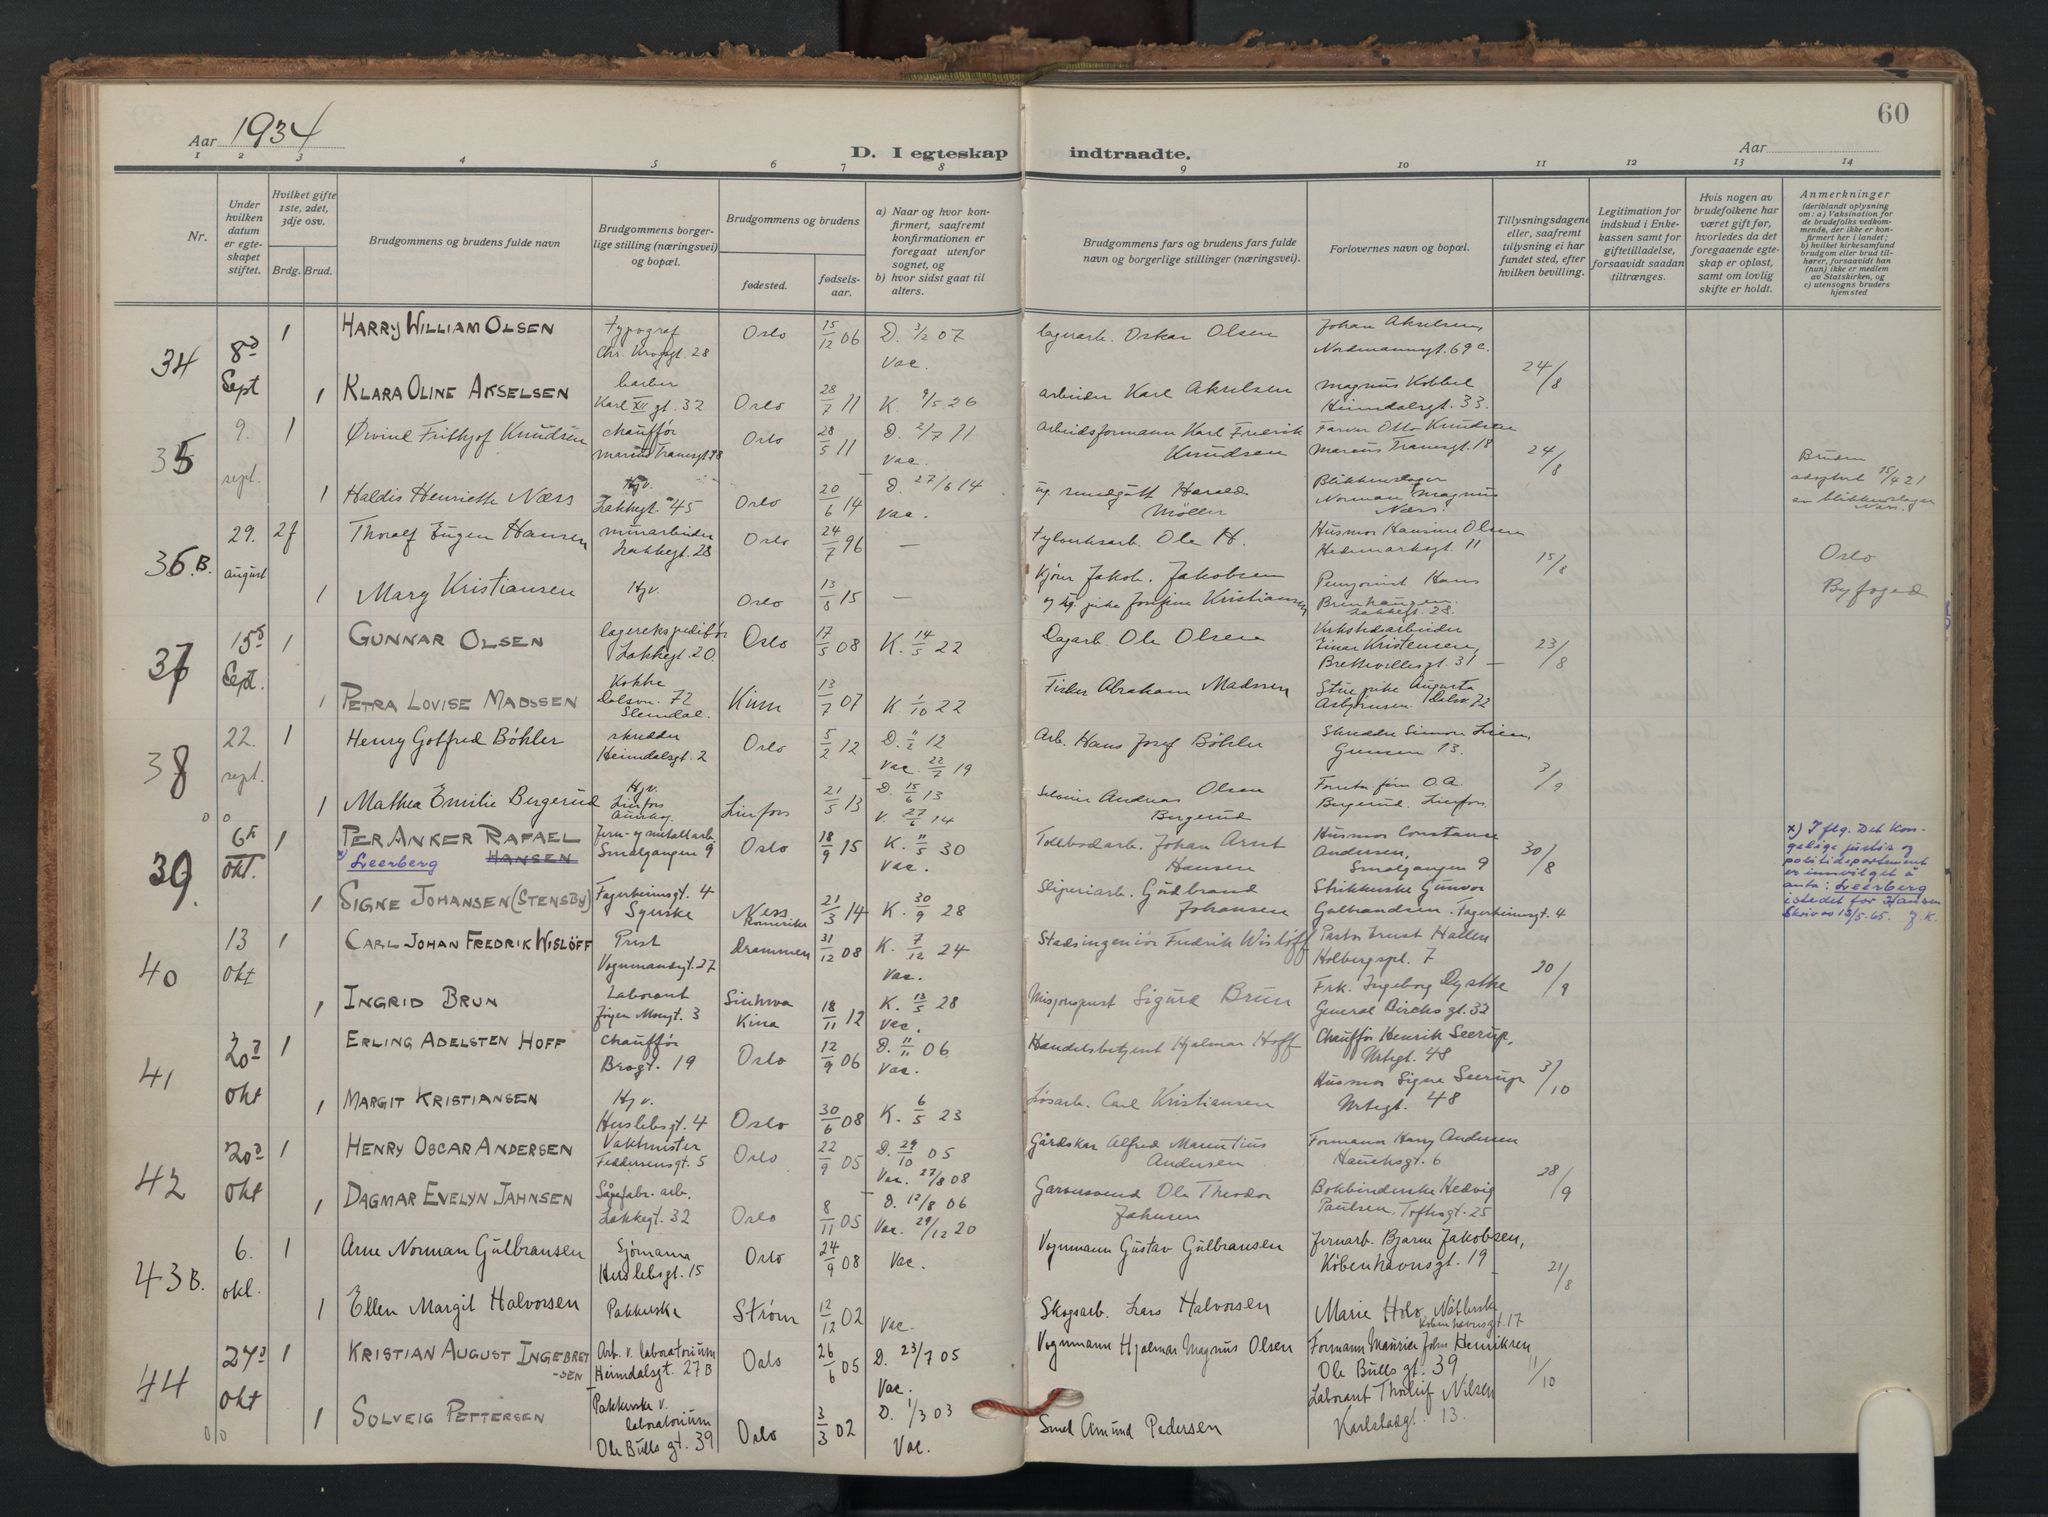 60
Aar 1934
D. I egteskap indtraadte.
Aar
1 2 3 4 5 6 7 8 9 10 11 12 13 14
Nr.
Under hvilken datum er egteskapet stiftet.
Hvilket gifte 1ste, 2det, 3dje osv.
Brdg. Brud.
Brudgommens og brudens fulde navn
Brudgommens borgerlige stilling (næringsvei) og bopæl.
Brudgommens og brudens
fødested.
fødselsaar.
a) Naar og hvor konfirmert, saafremt konfirmationen er foregaat utenfor sognet, og
b) hvor sidst gaat til alters.
Brudgommens fars og brudens fars fulde navn og borgerlige stillinger (næringsvei).
Forlovernes navn og bopæl.
Tillysningsdagene eller, saafremt tillysning ei har fundet sted, efter hvilken bevilling.
Legitimation for indskud i Enkekassen samt for giftetilladelse, forsaavidt saadan tiltrænges.
Hvis nogen av brudefolkene har været gift før, hvorledes da det foregaaende egteskap er opløst, samt om lovlig skifte er holdt.
Anmerkninger
(deriblandt oplysning om: a) Vaksination for de brudefolks vedkommende, der ikke er konfirmert her i landet; b) hvilket kirkesamfund brudgom eller brud tilhører, forsaavidt han (hun) ikke er medlem av Statskirken, og c) utensogns bruders hjemsted
34 8d Sept 1 HARRY WILLIAM OLSEN typograf Chr. Krogsgt. 28 Oslo 15/12 06 D. 3/2 07 Vac. lagerarb. Oskar Olsen Johan Akselsen, Nordmannsgt. 69 c. 24/8
1 KLARA OLINE AKSELSEN Karl XII gt. 32 Oslo 28/7 11 K. 9/5 26 arbeider Karl Akselsen Magnus Heimdalsgt. 33.
35 9. sept. 1 Øivind Frithjof Knudsen chauffør Marcus Tranesgt. 18 Oslo 28/5 11 D. 2/7 11 Vac. arbeidsformann Karl Fredrik Knudsen Otto Knudsen Marcus Tranesgt. 18 24/8
1 Haldis Henriette Næss Hjv. Lakkegt. 45 Oslo 20/6 14 D. 27/6 14 Vac. Harald Möller Blikkenslager Norman Magnus Næss. Bruden adoptert 15/4 21 av blikkenslager Næss.
36.B. 29. august 2f Thoralf Eugen Hansen murarbeider Lakkegt. 28 Oslo 24/7 96 — Ole H. Husmor Hansine Olsen Hedemarksgt. 11 15/8 Oslo Byfoged
1 Mary Kristiansen Hjv. Oslo 13/8 15 — Kjører Jakob Jakobsen og ug. pike Josefine Kristiansen Hans Lakkegt. 28.
37 15d Sept. 1 GUNNAR OLSEN lagerekspeditør Lakkegt. 20 Oslo 17/5 08 K. 14/5 22 Dagarb. Ole Olsen Verkstedsarbeider Einar Kristensen, Brettevillesgt. 31 — 23/8
1 PETRA LOVISE MADSSEN Kokke Dalsvn. 72 Slemdal. Kinn 13/7 07 K. 1/10 22 Fisker Abraham Madssen Stuepike Augusta Asbjørnsen. Dalsv. 72
38 22. sept. 1 Henry Gotfred Böhler skredder Heimdalsgt. 2 Oslo 5/2 12 D. 12 Vac. 22/7 19 Arb. Hans Josef Böhler Skredder Simon Lien, Grensen 13. 3/9
1 Mathea Emilie Bergerud Hjv. Lierfoss Aurskog. Lierfoss 21/5 13 D. 15/6 13 V. 27/6 14 Andreas Olsen Bergerud O.A. Bergerud. Lierfoss.
39. 6te okt. 1 PER ANKER RAFAEL HANSEN x) Leerberg Jern- og metallarb. Smalgangen 9 Oslo 18/9 15 K. 11/5 30 Vac. Tollbodarb. Johan Arnt Hansen Husmor Constanse Andersen, Smalgangen 9 30/8
x) I flg. Det Kongelige justis og politidepartement er innvilget å anta: Leerberg istedet for Hansen Skriv av 13/5-65. J.K.
1 SIGNE JOHANSEN (STENSBY) Fagerheimsgt. 4 Syerske Ness Romerike 21/3 14 K. 30/9 28 Sliperiarb. Gudbrand Johansen Strikkerske Gunvor Gulbrandsen, Fagerheimsgt. 4
40 13 okt 1 CARL JOHAN FREDRIK WISLÖFF Prest Vognmannsgt. 27 Drammen 31/12 08 K. 7/12 24 Vac. Stadsingeniör Fredrik Wislöff Pastor Ernst Hallen Holbergspl. 7 20/9
1 INGRID BRUN Laborant Jörgen Moesgt. 3 Kina 18/11 12 K. 13/5 28 Vac. Misjonsprest Sigurd Brun Frk. Ingeborg Dystke General Birchs gt. 32
41 20d okt 1 ERLING ADELSTEN HOFF Chauffør Brogt. 19 Oslo 12/9 06 D. 11/11 06 Vac. Handelsbetjent Hjalmar Hoff Chauffør Henrik Seerup, Urtegt. 48 3/10
1 MARGIT KRISTIANSEN Hjv. Herslebsgt. 4 Oslo 30/6 08 K. 6/5 23 Løsarb. Carl Kristiansen Husmor Signe Seerup Urtegt. 48
42 20d okt 1 HENRY OSCAR ANDERSEN Vaktmester Feddersensgt. 5 Oslo 22/9 05 D. 29/10 05 Vac. 27/8 08 Gårdskar Alfred Marentius Andersen Formann Harry Andersen Hauchsgt. 6 28/9
1 DAGMAR EVELYN JAHNSEN Såpefabr. arb. Lakkegt. 32 Oslo 8/11 05 D. 12/8 06 Vac. 29/12 20 Garversvend Ole Theodor Jahnsen Bokbinderske Hedvig Paulsen, Toftesgt. 25
43B. 6. okt. 1 Arne Norman Gulbransen Sjømann Herslebsgt. 15 Oslo 24/9 08 Vac. Vognmann Gustav Gulbransen Jernarb. Bjarne Jakobsen, Københavnsgt. 19 21/8
1 Ellen Margit Halvorsen Pakkerske Strøm 12/12 02 Vac. Skogsarb. Lars Halvorsen Marie Københavnsgt. 17
44 27d okt 1 KRISTIAN AUGUST INGEBRETSEN Arb. v. laboratorium Heimdalsgt. 27 B Oslo 26/6 05 D. 23/7 05 Vac. Vognmann Hjalmar Magnus Olsen Formann Mauritz John Henriksen Ole Bulls gt. 39 11/10
1 SOLVEIG PETTERSEN Pakkerske v. laboratorium Ole Bulls gt. 39 Oslo 3/3 02 D. 1/3 03 Vac. Smed Amund Pedersen Laborant Thorleif Nilsen Karlstadgt. 13.